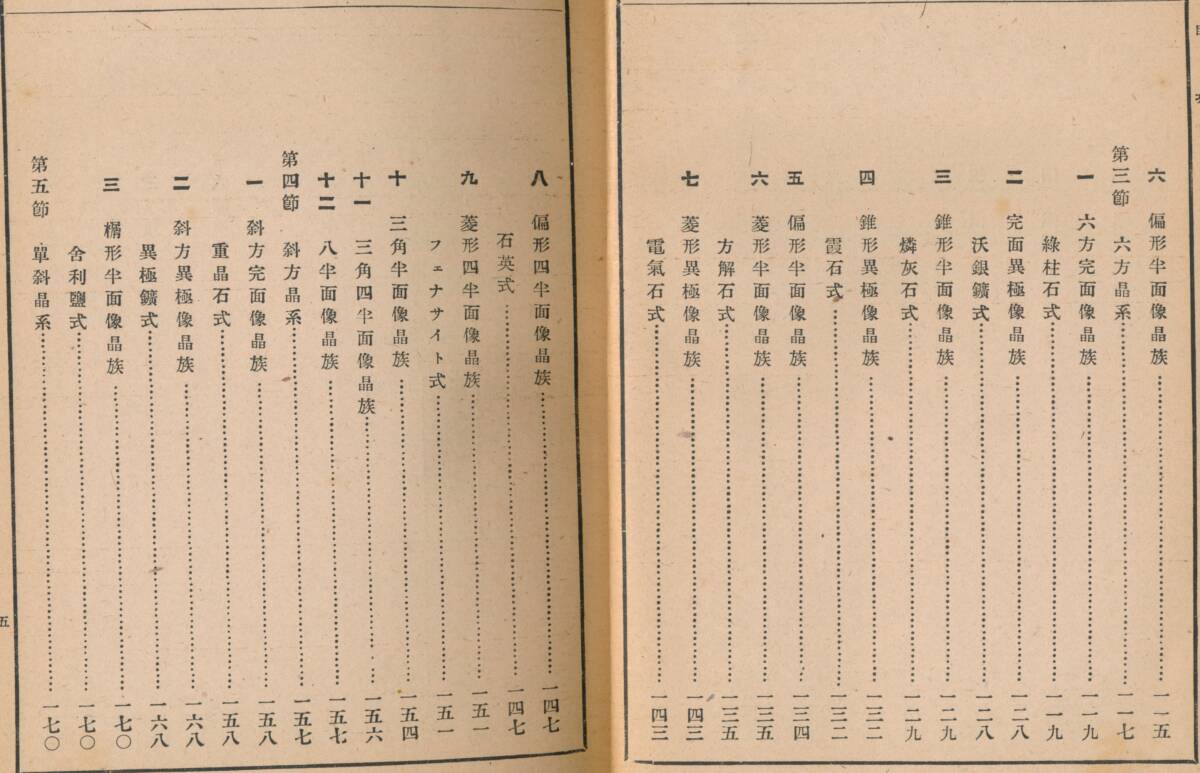 目 次
六 偏形半面像晶族…………一一五
第三節 六方晶系…………一一七
一 六方完面像晶族…………一一九
綠柱石式…………一一九
二 完面異極像晶族…………一二八
沃銀鑛式…………一二八
三 錐形半面像晶族…………一二九
燐灰石式…………一二九
四 錐形異極像晶族…………一三二
霞石式…………一三二
五 偏形半面像晶族…………一三四
六 菱形半面像晶族…………一三五
方解石式…………一三五
七 菱形異極像晶族…………一四三
電氣石式…………一四三
八 偏形四半面像晶族…………一四七
石英式…………一四七
九 菱形四半面像晶族…………一五一
フェナサイト式…………一五一
十 三角半面像晶族…………一五四
十一 三角四半面像晶族…………一五六
十二 八半面像晶族…………一五七
第四節 斜方晶系…………一五七
一 斜方完面像晶族…………一五八
重晶石式…………一五八
二 斜方異極像晶族…………一六八
異極鑛式…………一六八
三 楔形半面像晶族…………一七〇
舍利鹽式…………一七〇
第五節 單斜晶系…………一七〇
五